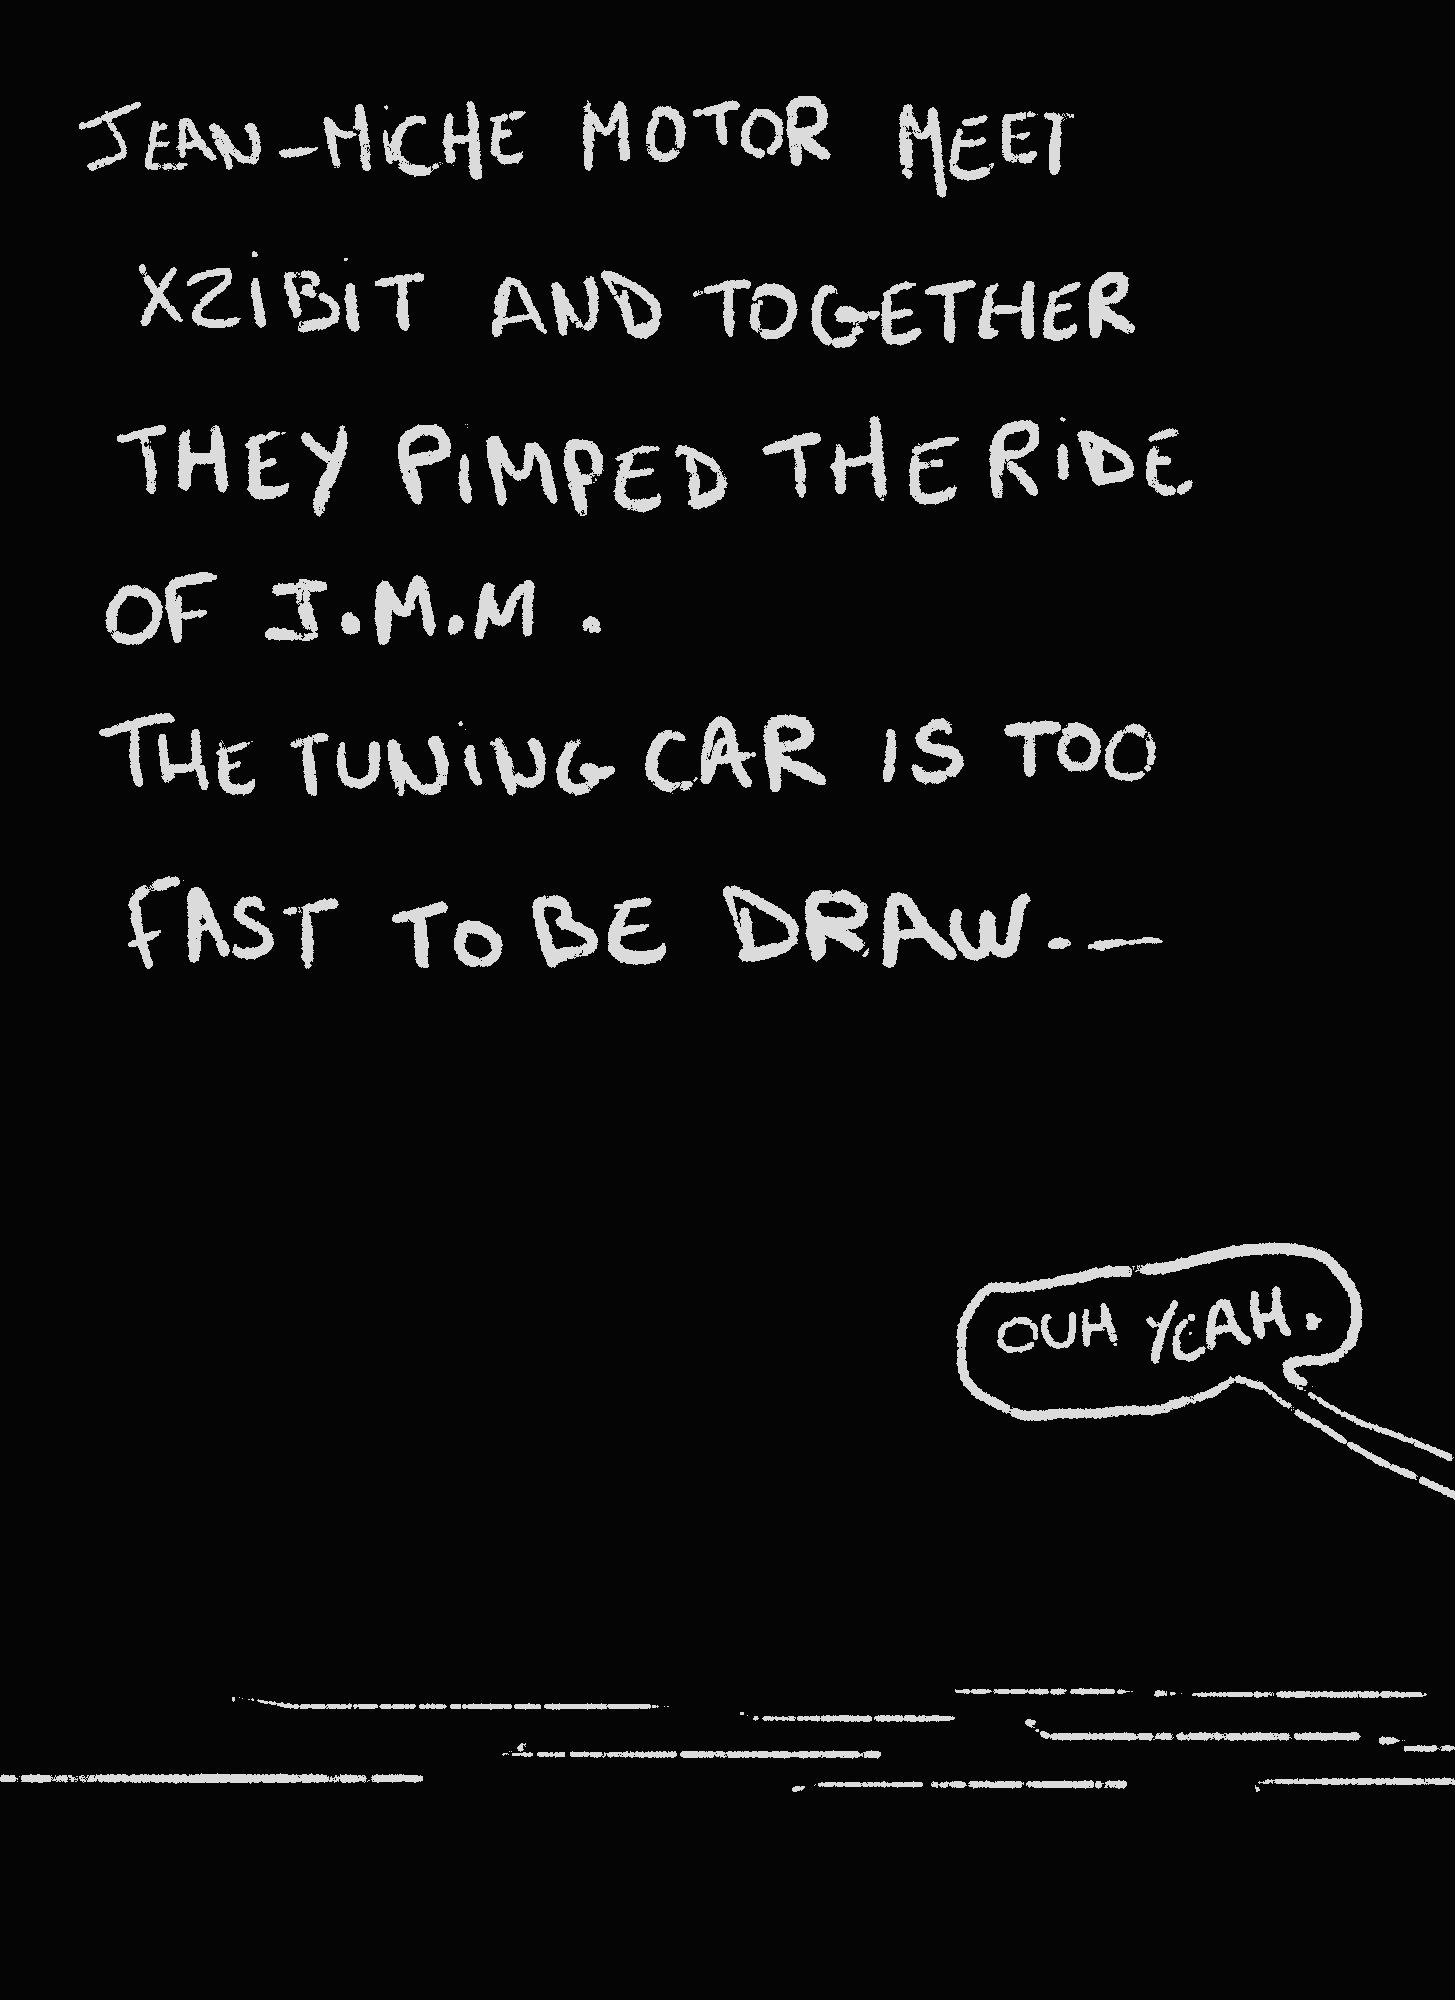 JEAN-MICHE MOTOR MEET
XZIBIT AND TOGETHER
THEY PIMPED THE RIDE
OF J.M.M.
THE TUNING CAR IS TOO
FAST TO BE DRAW.—
OUH YEAH.